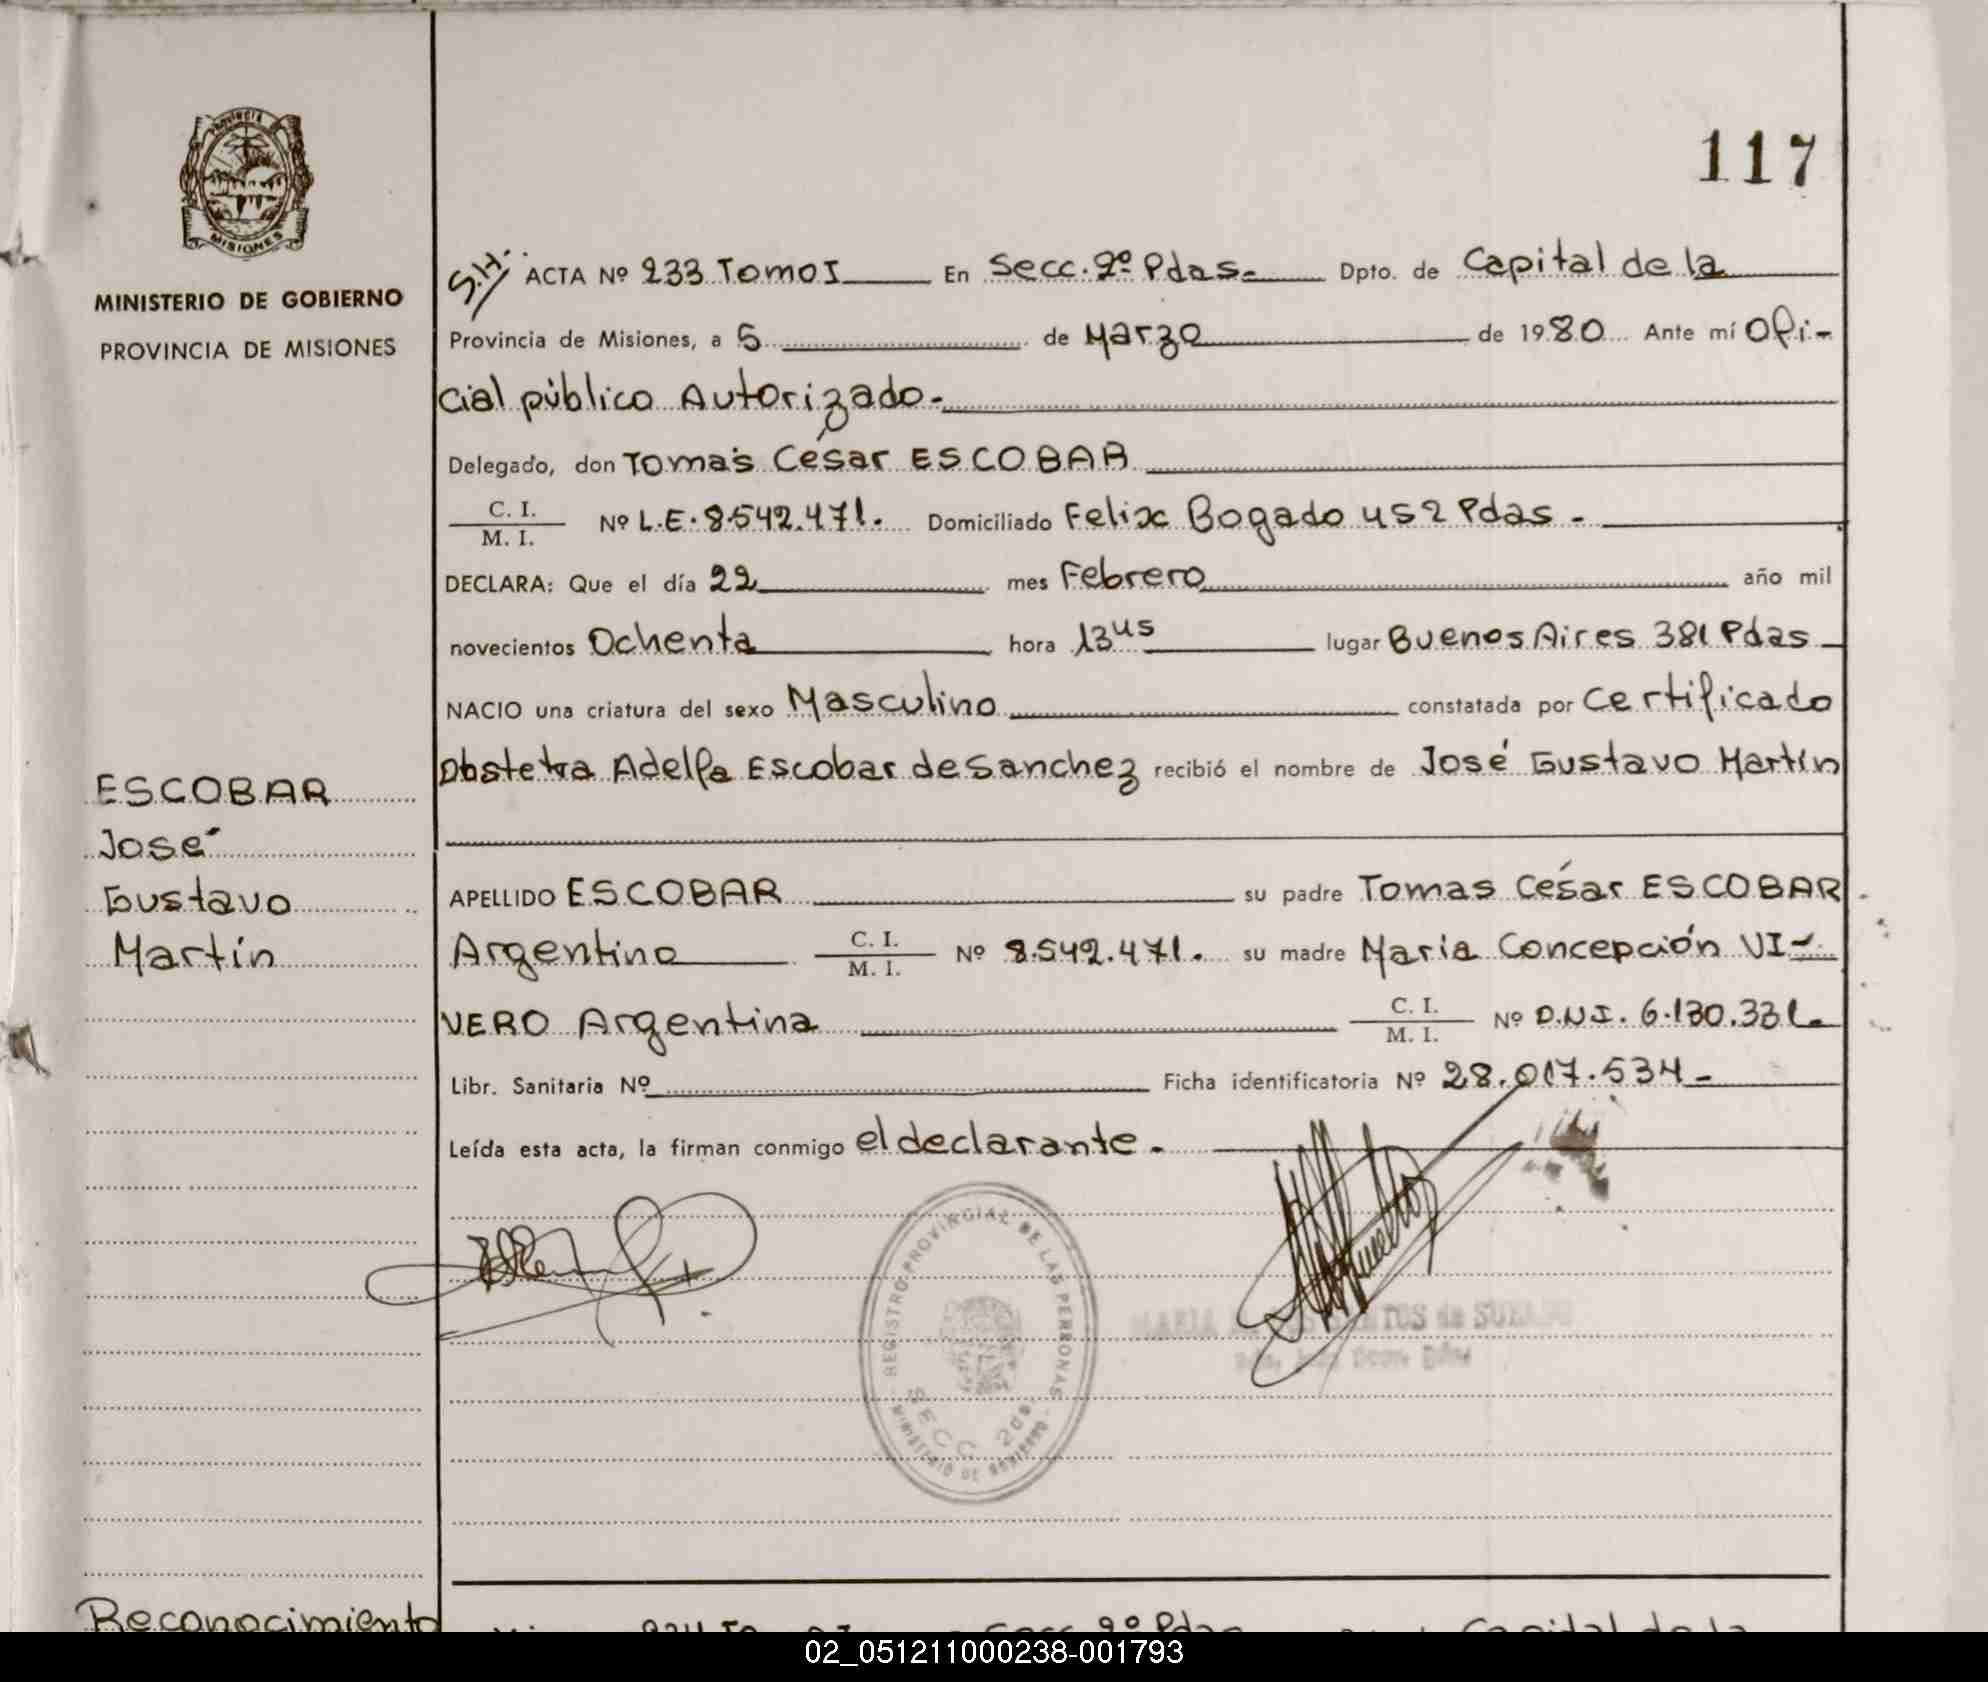 Provincia
MISIONES
MINISTERIO DE GOBIERNO
PROVINCIA DE MISIONES
ESCOBAR
José
Gustavo
Martín
117
S.H. ACTA Nº 233 Tomo I En Secc. 2º Pdas. Dpto. de Capital de la
Provincia de Misiones, a 5 de Marzo de 1980 Ante mí Ofi-
cial público Autorizado.
Delegado, don Tomás César ESCOBAR
C. I.
M. I. Nº L.E. 8.542.471. Domiciliado Felix Bogado 452 Pdas.
DECLARA: Que el día 22 mes Febrero año mil
novecientos Ochenta hora 13 45 lugar Buenos Aires 381 Pdas
NACIO una criatura del sexo Masculino constatada por Certificado
Obstetra Adelfa Escobar de Sanchez recibió el nombre de José Gustavo Martín
APELLIDO ESCOBAR su padre Tomas César ESCOBAR
Argentino C. I. M. I. Nº 8.542.471. su madre Maria Concepción VI-
VERO Argentina C. I. M. I. Nº D.N.I. 6.130.331.
Libr. Sanitaria Nº Ficha identificatoria Nº 28.017.534
Leída esta acta, la firman conmigo el declarante.
REGISTRO PROVINCIAL DE LAS PERSONAS
SECC. 2da
MINISTERIO DE GOBIERNO
MARIA SANTOS de
Reconocimiento
Secc. 2º Pdas Capital de la
02_051211000238-001793